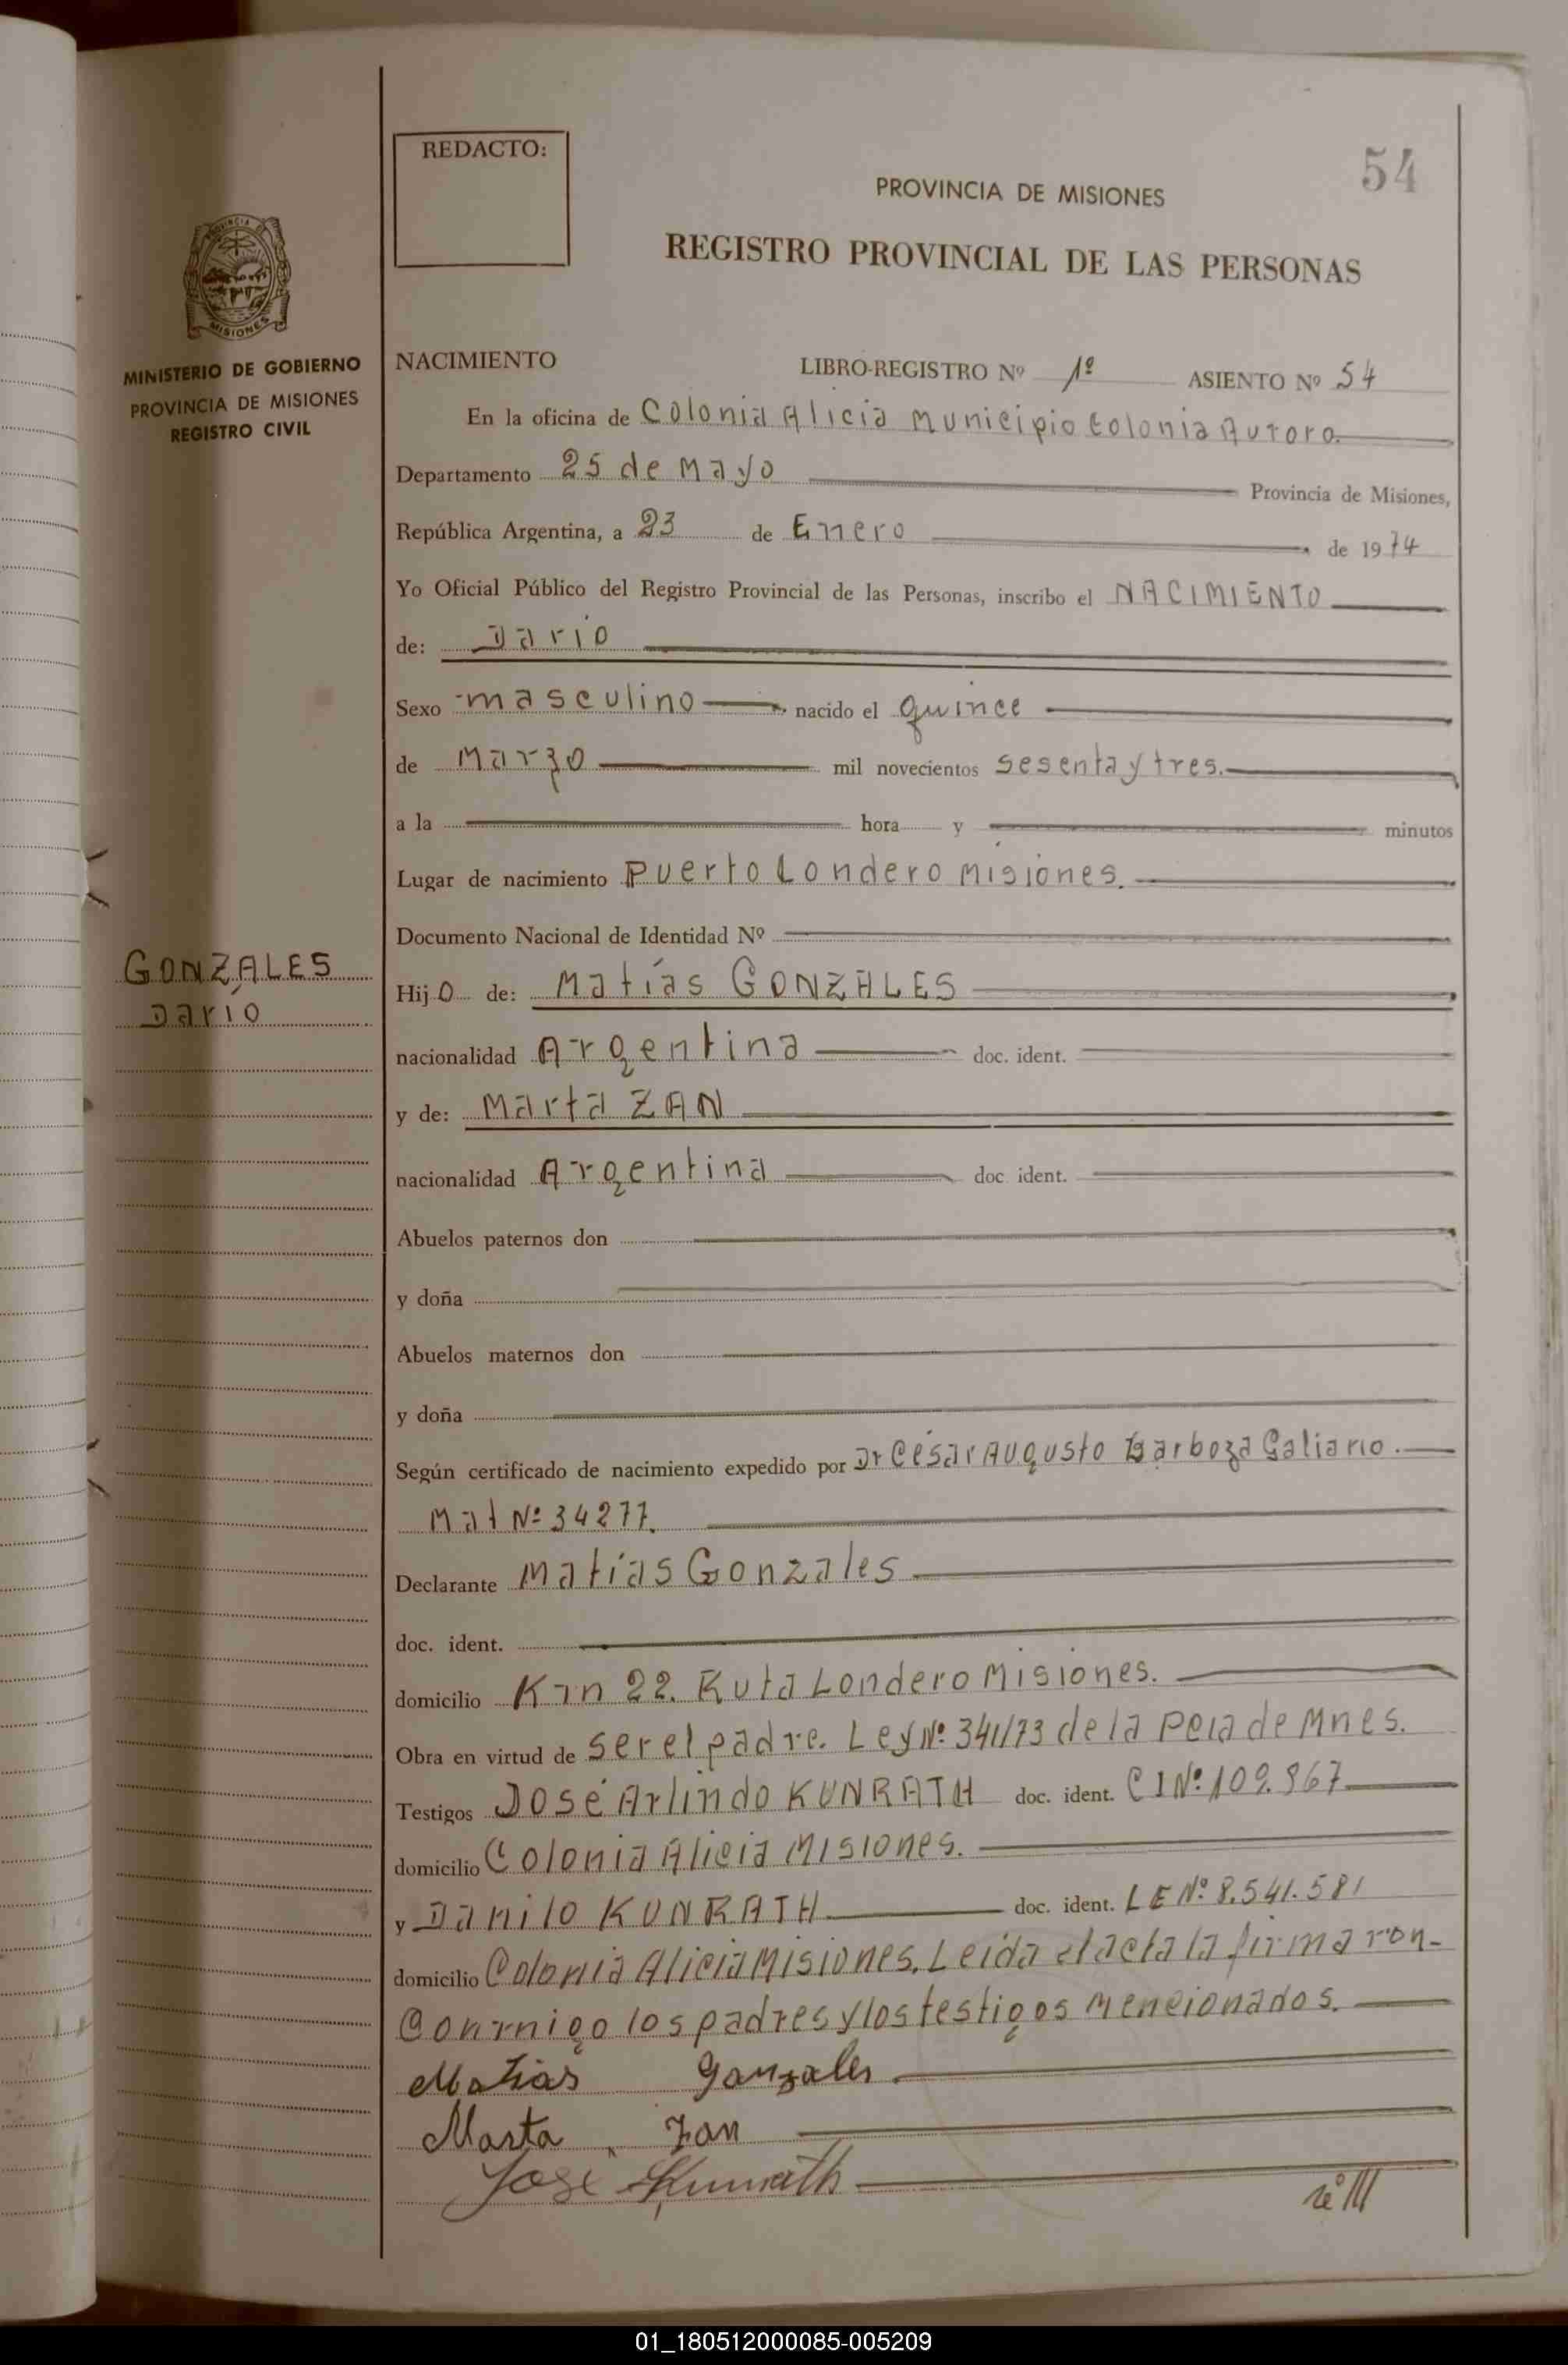 REDACTO:
54
PROVINCIA DE MISIONES
REGISTRO PROVINCIAL DE LAS PERSONAS
PROVINCIA D
MISIONES
MINISTERIO DE GOBIERNO
PROVINCIA DE MISIONES
REGISTRO CIVIL
NACIMIENTO LIBRO-REGISTRO Nº 1º ASIENTO Nº 54
En la oficina de Colonia Alicia Municipio Colonia Aurora.
Departamento 25 de Mayo Provincia de Misiones,
República Argentina, a 23 de Enero de 1974
Yo Oficial Público del Registro Provincial de las Personas, inscribo el NACIMIENTO
de: Darío
Sexo masculino nacido el quince
de Marzo mil novecientos sesenta y tres.
a la hora y minutos
Lugar de nacimiento Puerto Londero Misiones.
Documento Nacional de Identidad Nº
GONZALES
Darío
Hijo de: Matías GONZALES
nacionalidad Argentina doc. ident.
y de: Marta ZAN
nacionalidad Argentina doc. ident.
Abuelos paternos don
y doña
Abuelos maternos don
y doña
Según certificado de nacimiento expedido por Dr César Augusto Barboza Galiano.
Mat Nº 34277.
Declarante Matías Gonzales
doc. ident.
domicilio Km 22. Ruta Londero Misiones.
Obra en virtud de ser el padre. Ley Nº 341/73 de la Pcia de Mnes.
Testigos José Arlindo KUNRATH doc. ident. C I Nº 109.367
domicilio Colonia Alicia Misiones.
y Danilo KUNRATH doc. ident. L E Nº 8.541.581
domicilio Colonia Alicia Misiones. Leída el acta la firmaron-
Conmigo los padres y los testigos mencionados.
Matias Gonzales
Marta Zan
José Kunrath
01_180512000085-005209